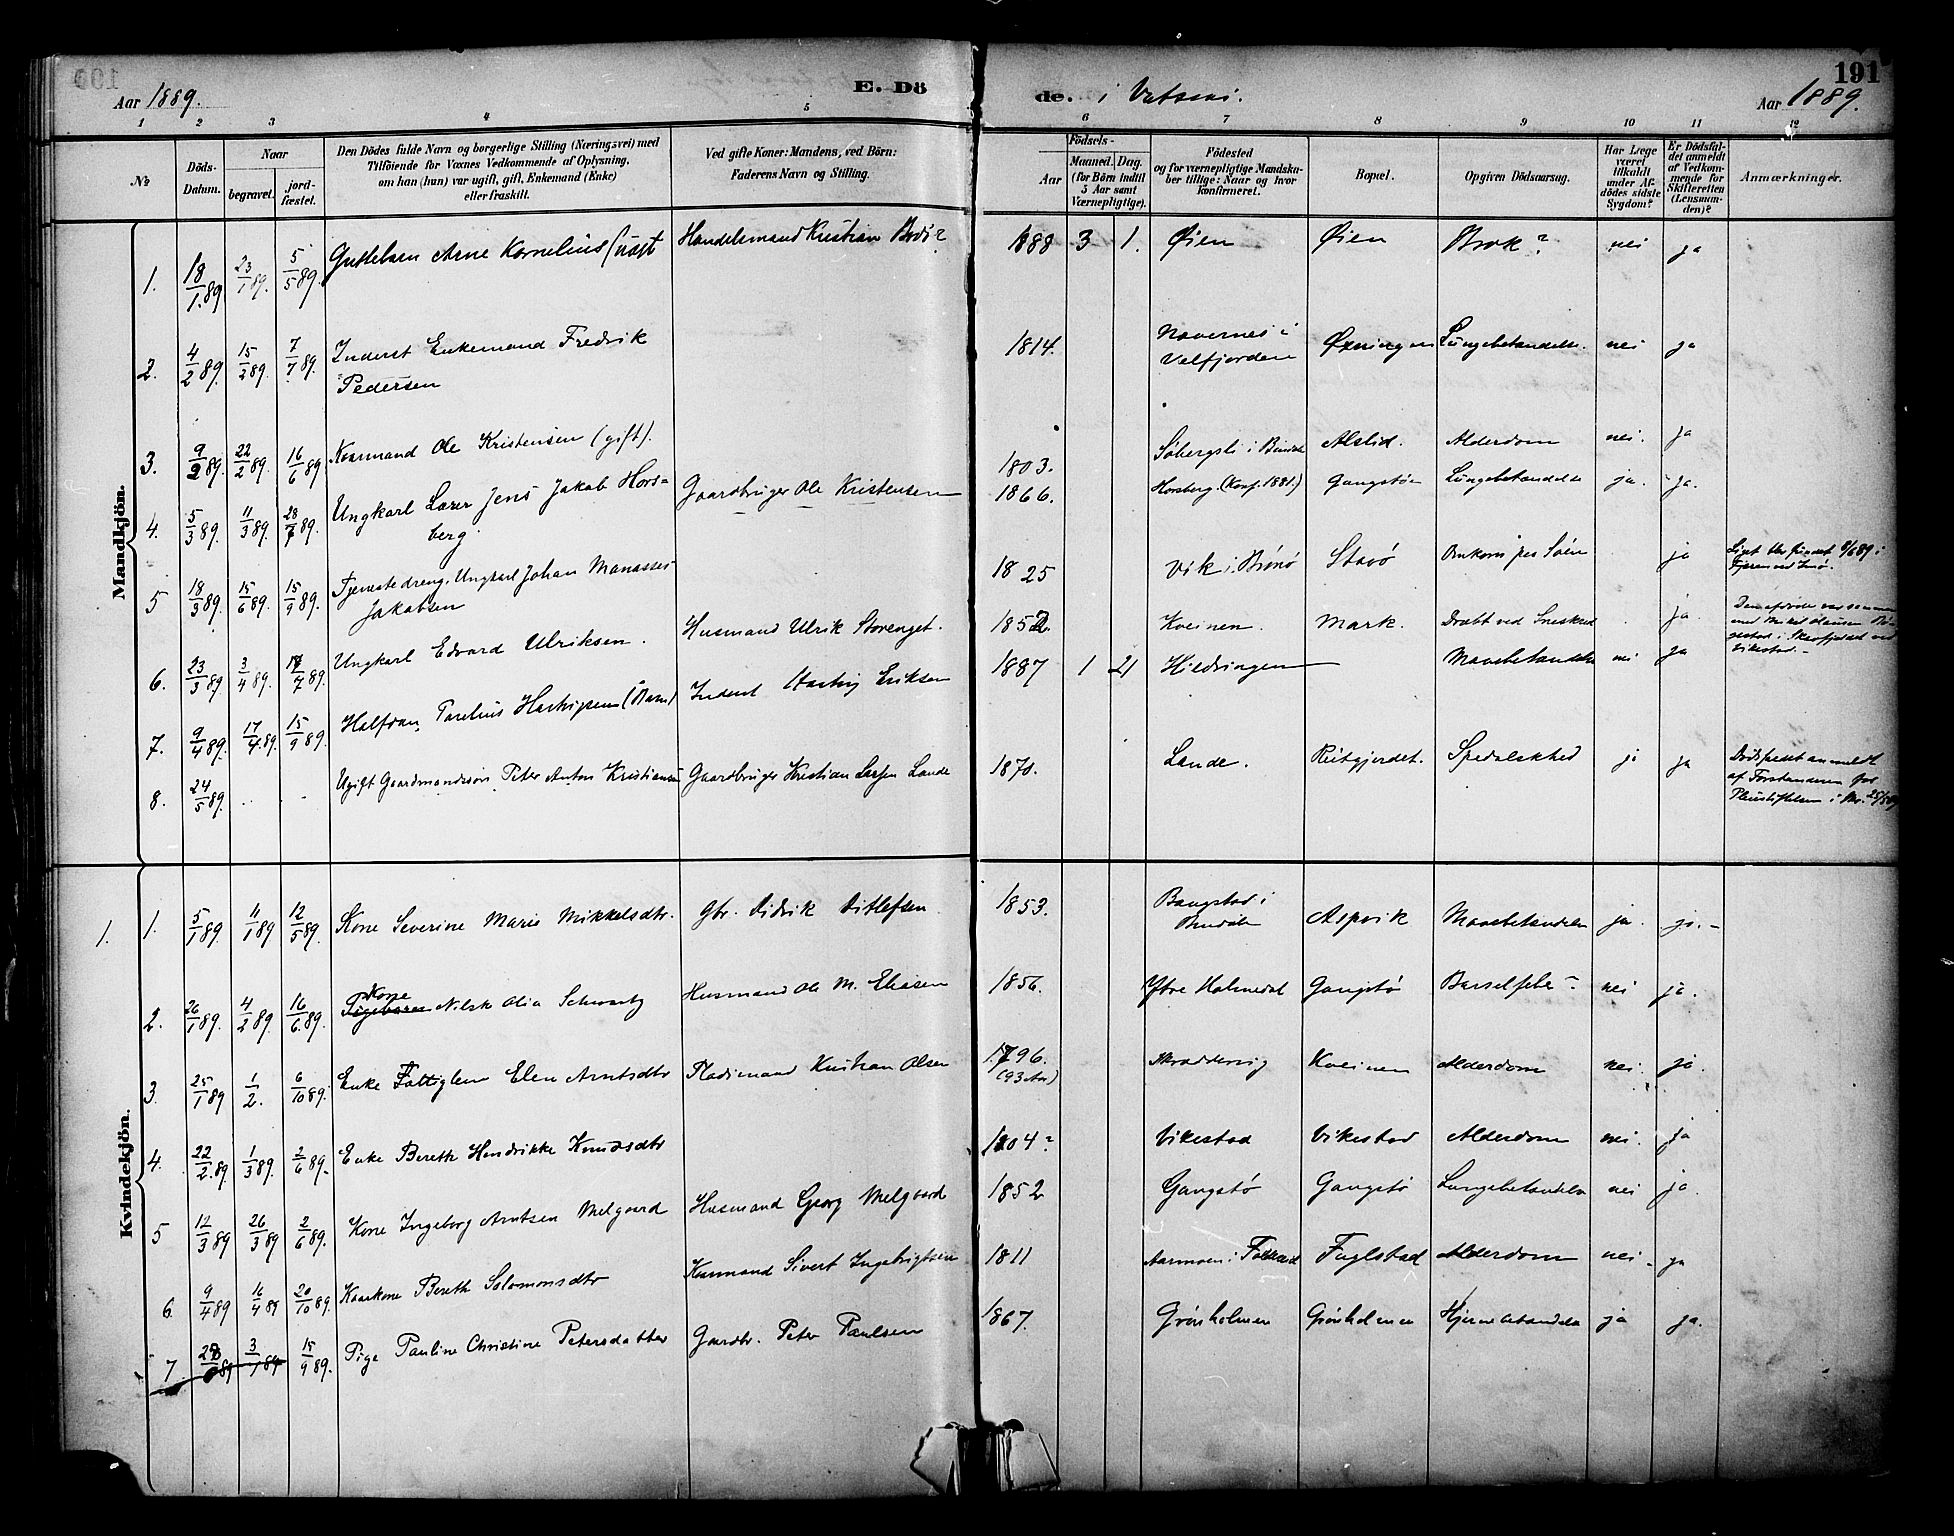 191
Aar 1889.
E. Dö
de.
i
Aar 1889.
1 2 3 4 5 6 7 8 9 10 11 12
No
Döds-Datum.
Naar
begravet.
jord-fæstet.
Den Dödes fulde Navn og borgerlige Stilling (Næringsvei) med
Tilföiende for Voxnes Vedkommende af Oplysning,
om han (hun) var ugift, gift, Enkemand (Enke)
eller fraskilt.
Ved gifte Koner: Mandens, ved Börn:
Faderens Navn og Stilling.
Födsels-
Aar
Maaned. Dag.
(for Börn indtil
5 Aar samt
Værnepligtige).
Födested
og for værnepligtige Mandskaber tillige: Naar og hvor
konfirmeret.
Bopæl.
Opgiven Dödsaarsag.
Har Læge
været
tilkaldt
under Afdödes sidste
Sygdom?
Er Dödsfaldet anmeldt
af Vedkommende for
Skifteretten
(Lensmanden)?
Anmærkninger.
Mandkjön.
1. 18/1.89 23/1 89. 5/5 89. Arne Kornelius Handelsmand Kristian 1888 3 1. Øien Øien Brok? nei ja
2. 4/2 89. 15/2 89. 7/7 89. Inderst Enkemand Fredrik
Pedersen 1814. i
Velfjorden Lungebetændelse. nei ja
3. 9/2 89. 22/2 89. 16/6 89 Kaarmand Ole Kristensen (gift). 1803. Søbergsli i Bindal Alslid. Alderdom nei. ja
4. 5/3 89. 11/3 89. 28/7 89. Ungkarl Lærer Jens Jakob Hors=
berg. Gaardbruger Ole Kristensen 1866. Horsberg. (Konf. 1881.) Gangstø Lungebetændelse ja. ja.
5 18/3 89. 15/6 89. 15/9 89. Tjenestedreng, Ungkarl Johan Manasses
Jakobsen 1825 Vik i Brønø Stavø Omkom paa Søen ja Liget blev fundet 8/6 89 i
Fjæren ved
6. 23/3 89 3/4 89. 14/7 89. Ungkarl Edvard Ulriksen. Husmand Ulrik Storenget. 1852. Kveinen. Mark. Dræbt ved Sneskred ja. Den afdøde var sammen
med
i ved
Vikestad.
7. 9/4 89. 17/4.89. 15/9 89. Halfdan Hartvigsen (Barn) Inderst Hartvig Eriksen 1887 1 21 Hildringen Mavebetændelse nei ja
8. 24/5 89. Ugift Gaardmandssøn Peter Anton Kristiansen Gaardbruger Kristian Larsen Lande 1870. Lande. Spedalskhed ja ja Dødsfaldet anmeldt
af Forstanderen for
Pleiestiftelsen i 25/5 89
Kvindekjön.
1. 1. 5/1 89. 11/1 89 12/5 89. Kone Severine Marie Mikkelsdtr. Gbr. Didrik Ditlefsen 1853. Bangstad i
Bindalen Aspvik Mavebetændelse ja. ja.
2. 26/1 89. 4/2 89. 16/6.89. Kone
Pigebarn Olia Schwartz Husmand Ole M. Eliasen 1856. Ytre Holmedal Gangstø Barselfeber nei ja.
3. 25/1 89 1/2. 6/10 89. Enke Fattiglem Elen Arntsdtr Pladsmand Kristian Olsen 1796.
(93 Aar) Kveinen Alderdom nei. ja.
4. 22/2.89. 1/3 89. 2/6 89. Enke Bereth Hendrikke Knudsdtr 1804? Vikestad Vikestad Alderdom nei. ja
5 12/3 89 26/3 89 2/6 89. Kone Ingeborg Arntsen Melgaard Husmand Georg Melgaard 1852 Gangstø Gangstø Lungebetændelse nei ja.
6. 9/4 89 16/4 89 20/10 89. Kaarkone Bereth Salomonsdtr Kaarmand Sivert Ingebrigtsen 1811 Aarmoen i Foldereid Fuglstad Alderdom nei. ja
7. 89 3/ 89 15/9 89. Pige Pauline Christine Petersdatter Gaardbr. Peter Paulsen 1867. Grønholmen Grønholmen Hjernebetændelse ja ja.